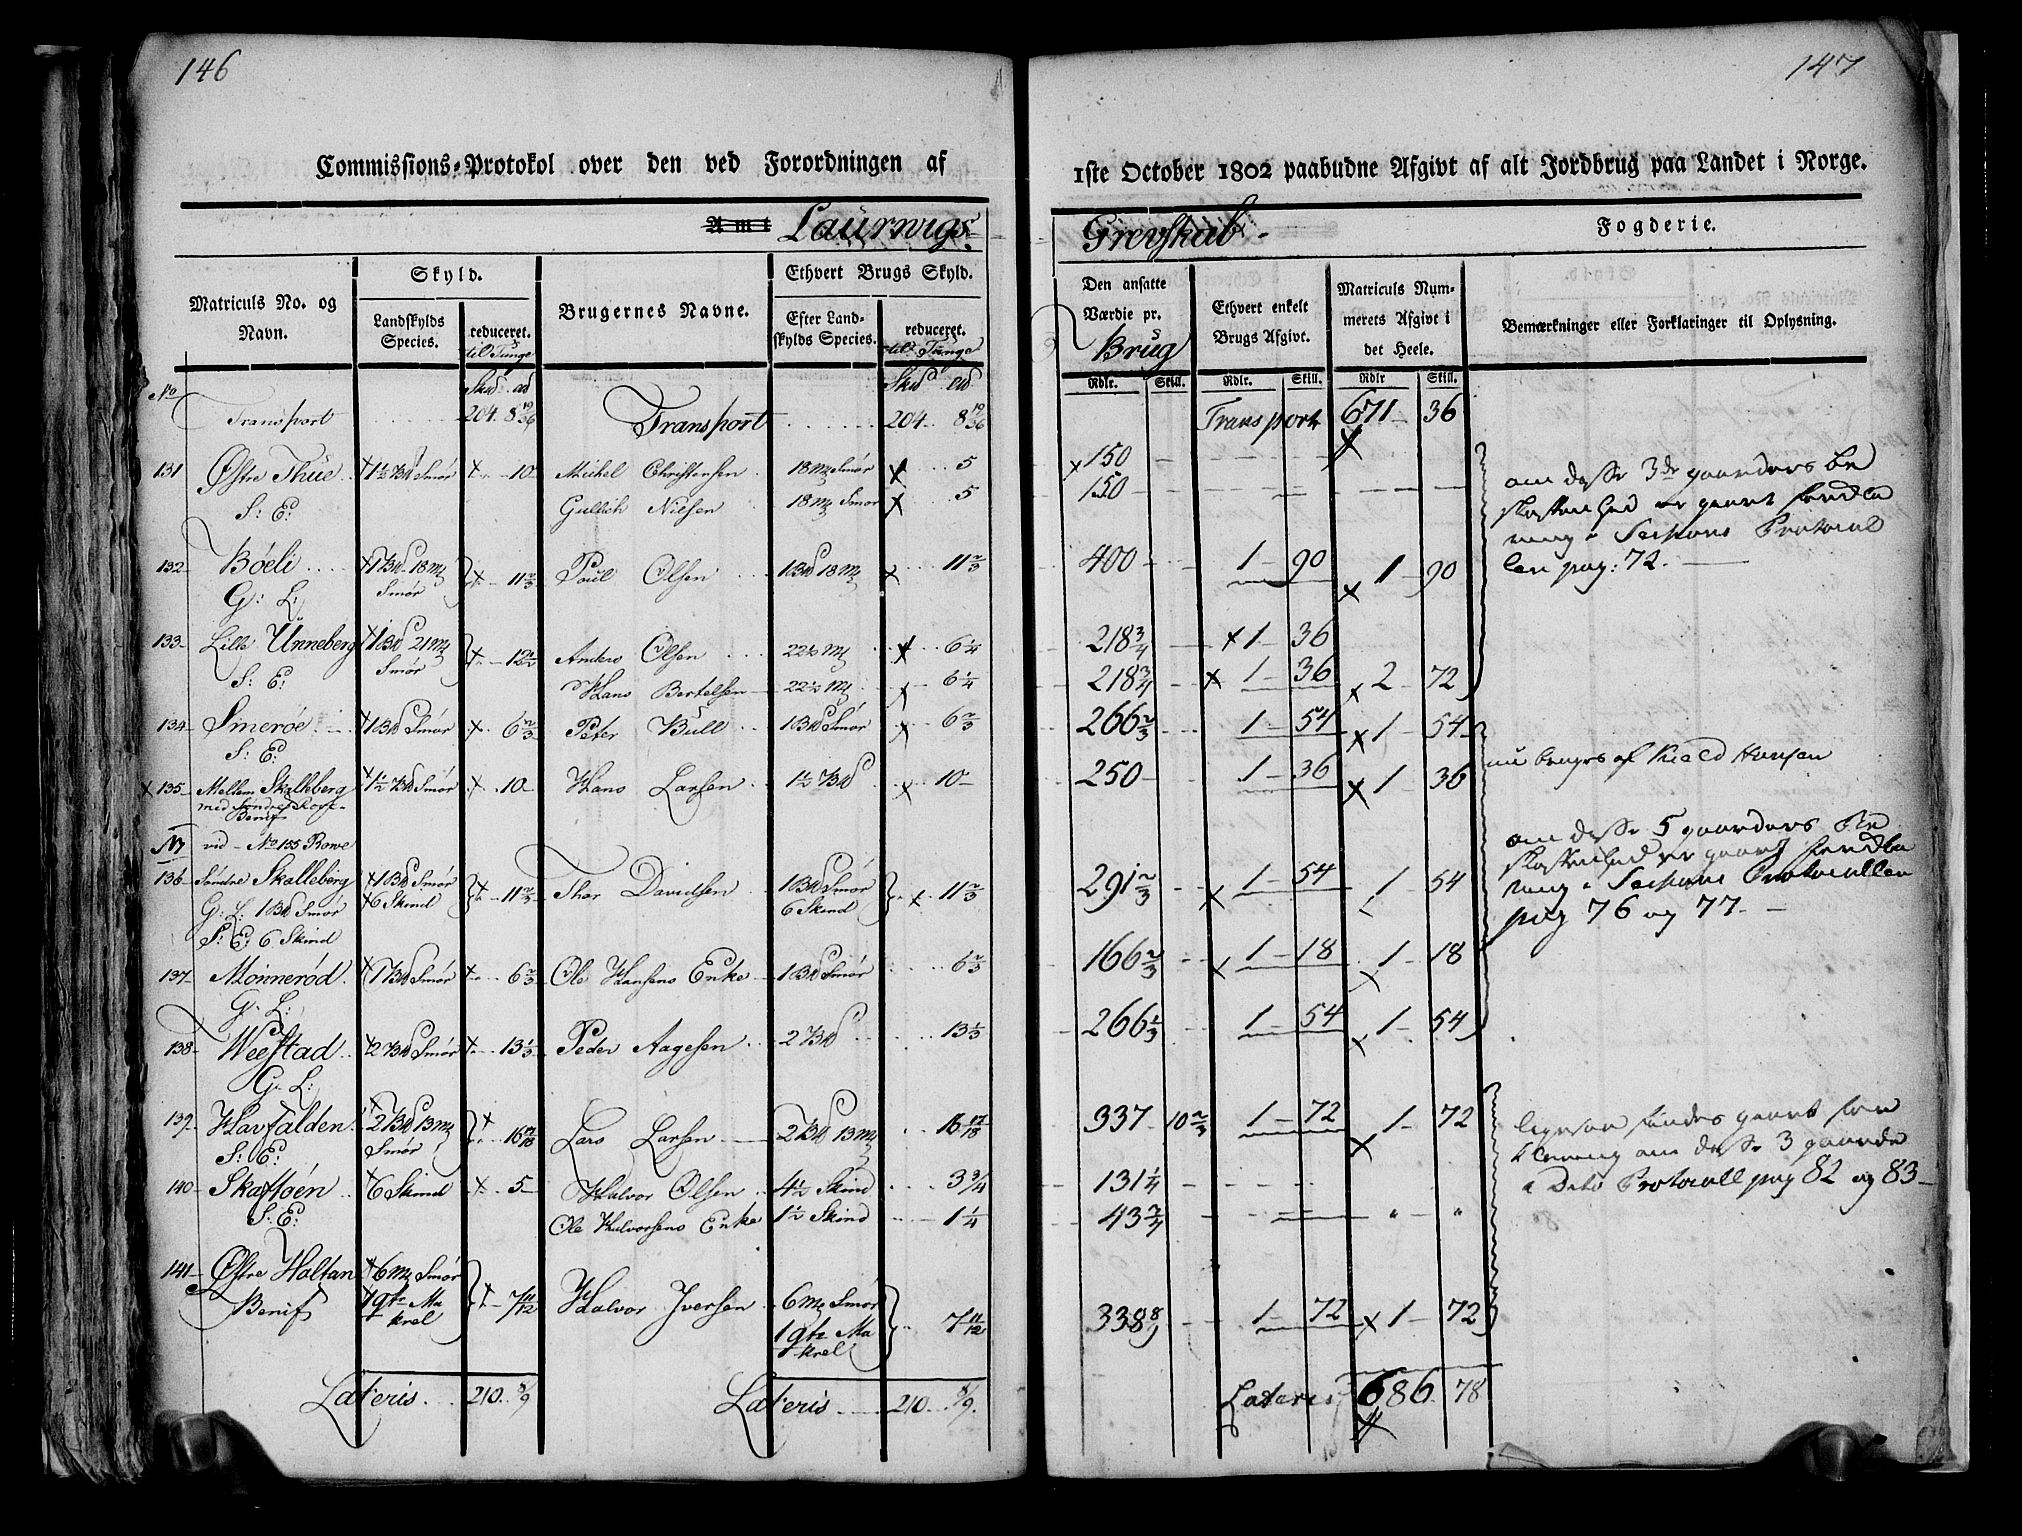 146
147
Commissions-Protokol over den ved Forordningen af
1ste October 1802 paabudne Afgivt af alt Jordbrug paa Landet i Norge.
Amt Laurwigs
Grevskab
Fogderie.
Matriculs No. og Navn.
Skyld.
Landskylds Species.
reduceret. til Tunge
Brugernes Navne.
Ethvert Brugs Skyld.
Efter Landskylds Species.
reduceret. til Tunge
Den ansatte Værdie pr. Brug
Ethvert enkelt Brugs Afgivt.
Matriculs Nummerets Afgivt i det Heele.
Bemærkninger eller Forklaringer til Oplysning.
No
Rdlr. Skill. Rdlr. Skill. Rdlr Skill.
Transport 204. 8 19/36 Transport 204. 8 19/36 Transport 671 36
131 Østre Thüe 1½ Smør 10 Michel Christensen 18 Smør 5 150
S: E: Gullich Nilsen 18 Smør 5 150
132 Bøeli 1 18 Smør 11 2/3 Poul Olsen 1 18 11 2/3 400 1 90 1 90
G: L:
133 Lille Ünneberg 1 21 Smør 12½ Anders Olsen 22½ 6¼ 218¾ 1 36
S: E: Hans Bertelsen 22½ 6¼ 218¾ 1 36 2 72
134 Smerøe 1 Smør 6 2/3 Peter Bull 1 Smør 6 2/3 266 2/3 1 54 1 54
S: E:
135 Mellem Skalleberg 1½ Smør 10 Hans Larsen 1½ 10 250 1 36 1 36
Benif
vid No 155 Rowe
136 Søndre Skalleberg 1 Smør 6 Skind 11 2/3 Thor Davidsen 1 Smør 6 Skind 11 2/3 291 2/3 1 54 1 54
G: L: 1 Smør
S: E: 6 Skind
137 Mønnerød 1 Smør 6 2/3 Ole Hansens Enke 1 Smør 6 2/3 166 2/3 1 18 1 18
G: L:
138 Weestad 2 Smør 13 1/3 Peder Aagesen 2 13 1/3 266 2/3 1 54 1 54
G: L:
139 Havfalden 2 13 Smør 16 17/18 Lars Larsen 2 13 16 17/18 337 10 2/3 1 72 1 72
S: E:
140 Skaftøen 6 Skind 5 Halvor Olsen 4½ Skind 3¾ 131¼
S: E: Ole Halvorsens Enke 1½ Skind 1¼ 43¾
141 Østre Holtan 6 Smør 1 qtr Makrel 7 11/12 Halvor Iversen 6 Smør 1 qtr Makrel 7 11/12 338 8/9 1 72 1 72
Benif
Lateris 210 8/9 Lateris 210 8/9 Lateris 686 78
om desse 3de gaarders be
skaffenhed er giort forkla
ring i Protocol
len pag: 72.
nu bruges af Kield Hansen
om desse 5 gaarders Be
skaffenhed er giort forkla
ring i Protocollen
pag 76 og 77.
ligesom findes giort for
klaring om desse 3 gaarde
i Dito Protocoll pag 82 og 83